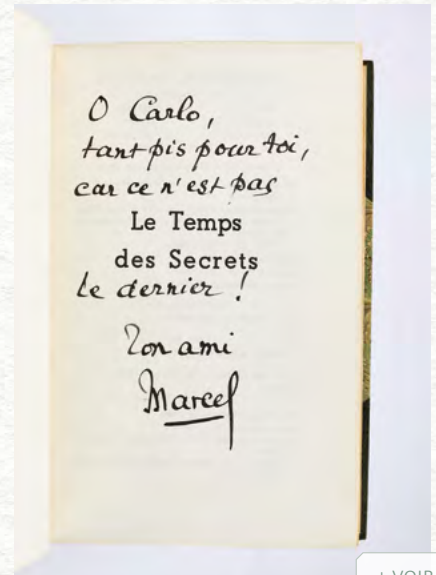 O Carlo,
tant pis pour toi,
car ce n'est pas
Le Temps
des Secrets
le dernier !
Ton ami
Marcel
VOIR